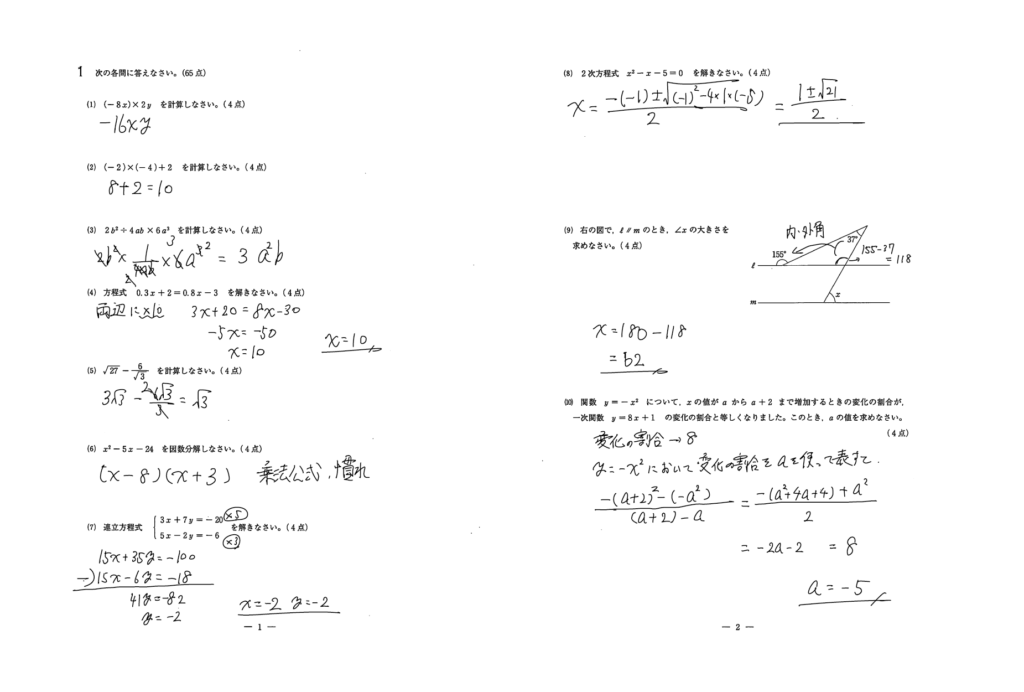 1 次の各問に答えなさい。(65点)
(1) (−8x)×2y を計算しなさい。(4点)
−16xy
(2) (−2)×(−4)+2 を計算しなさい。(4点)
8+2=10
(3) 2b²÷4ab×6a³ を計算しなさい。(4点)
2b²× 1/4ab ×6a³ = 3a²b
(4) 方程式 0.3x+2=0.8x−3 を解きなさい。(4点)
両辺に×10 3x+20=8x−30
−5x=−50
x=10 x=10
(5) √27 − 6/√3 を計算しなさい。(4点)
3√3 − 6√3/3 = √3
(6) x²−5x−24 を因数分解しなさい。(4点)
(x−8)(x+3) 乗法公式,慣れ
(7) 連立方程式 { 3x+7y=−20 ×5
5x−2y=−6 ×3 を解きなさい。(4点)
15x+35y=−100
−)15x−6y=−18
41y=−82
y=−2 x=−2 y=−2
— 1 —
(8) 2次方程式 x²−x−5=0 を解きなさい。(4点)
x = −(−1)±√(−1)²−4×1×(−5) / 2 = 1±√21 / 2
(9) 右の図で,ℓ∥mのとき,∠xの大きさを
求めなさい。(4点)
内・外角
37°
155°
155−37
=118
ℓ
m
x
x=180−118
=62
(10) 関数 y=−x² について,xの値がaからa+2まで増加するときの変化の割合が,
一次関数 y=8x+1 の変化の割合と等しくなりました。このとき,aの値を求めなさい。
(4点)
変化の割合→8
y=−x²において変化の割合をaを使って表すと.
−(a+2)²−(−a²) / (a+2)−a = −(a²+4a+4)+a² / 2
= −2a−2 = 8
a=−5
— 2 —